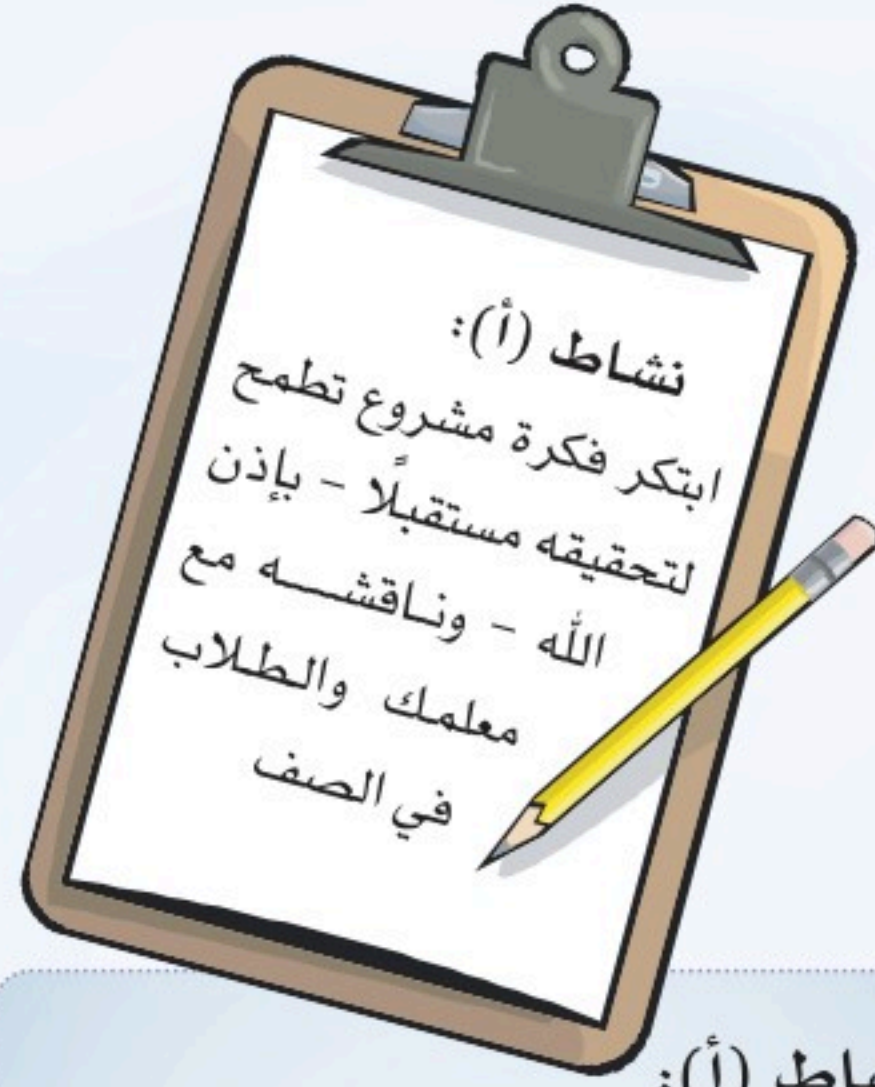 نشاط (أ):
ابتكر فكرة مشروع تطمح
لتحقيقه مستقبلًا - بإذن
الله - وناقشه مع
معلمك والطلاب
في الصف
(أ):